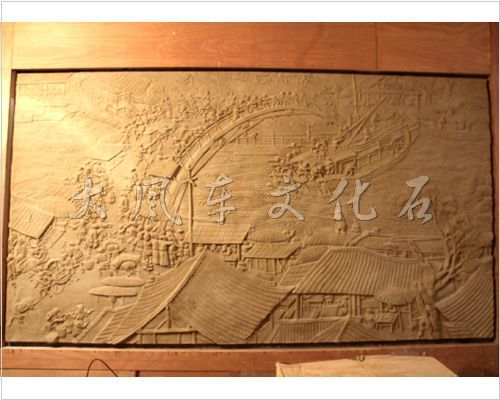 大风车文化石